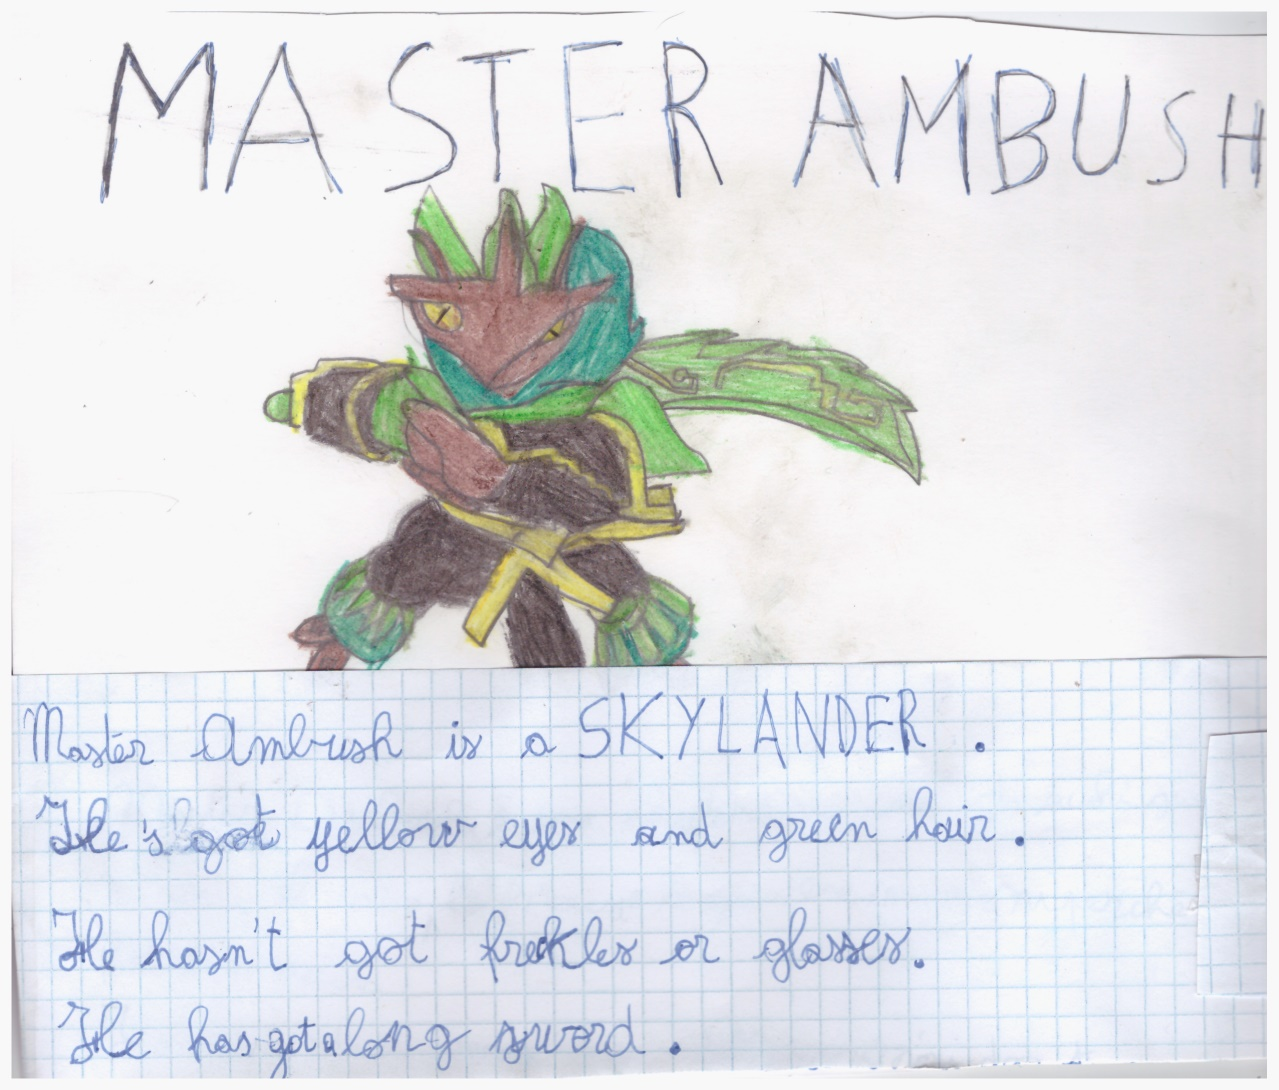 MASTER AMBUSH
Master Ambush is a SKYLANDER.
He's got yellow eyes and green hair.
He hasn't got frekles or glasses.
He has got a long sword.